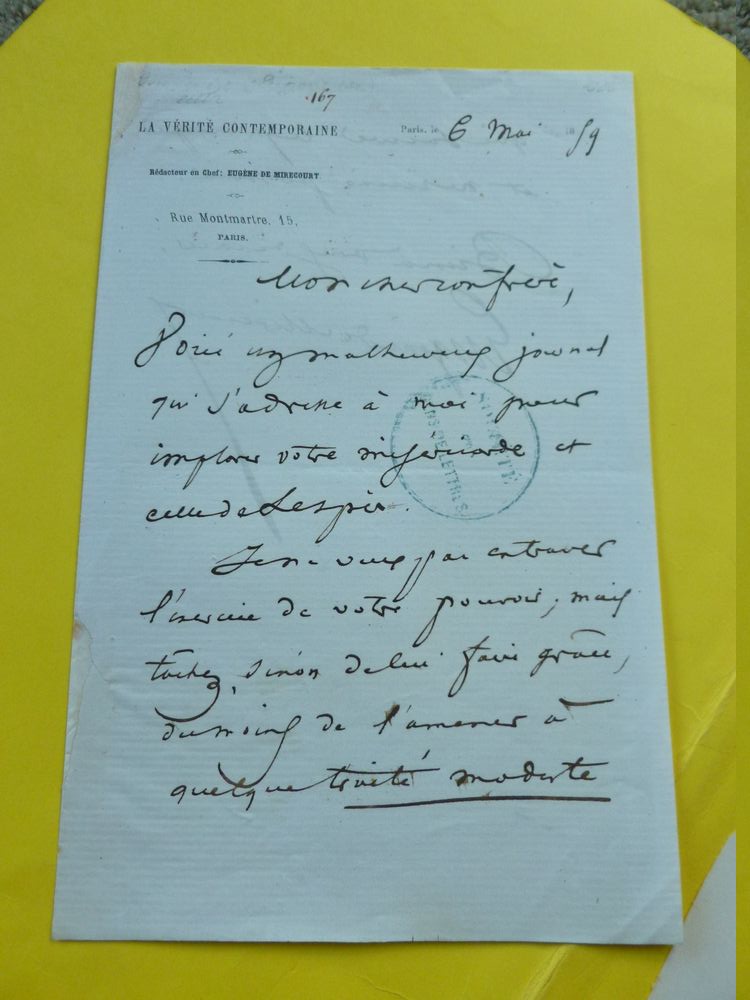 .167
LA VÉRITÉ CONTEMPORAINE
Paris, le 6 Mai 1859
Rédacteur en Chef: EUGÈNE DE MIRECOURT
Rue Montmartre, 15,
PARIS.
Mon cher confrère,
Voici un malheureux journal
qui s'adresse à moi pour
implorer votre miséricorde et
celle de Lespès.
Je ne veux pas entraver
l'exercice de votre pouvoir; mais
tâchez, sinon de lui faire grâce,
du moins de l'amener à
quelque traité modeste
SOCIÉTÉ
DES
GENS DE LETTRES